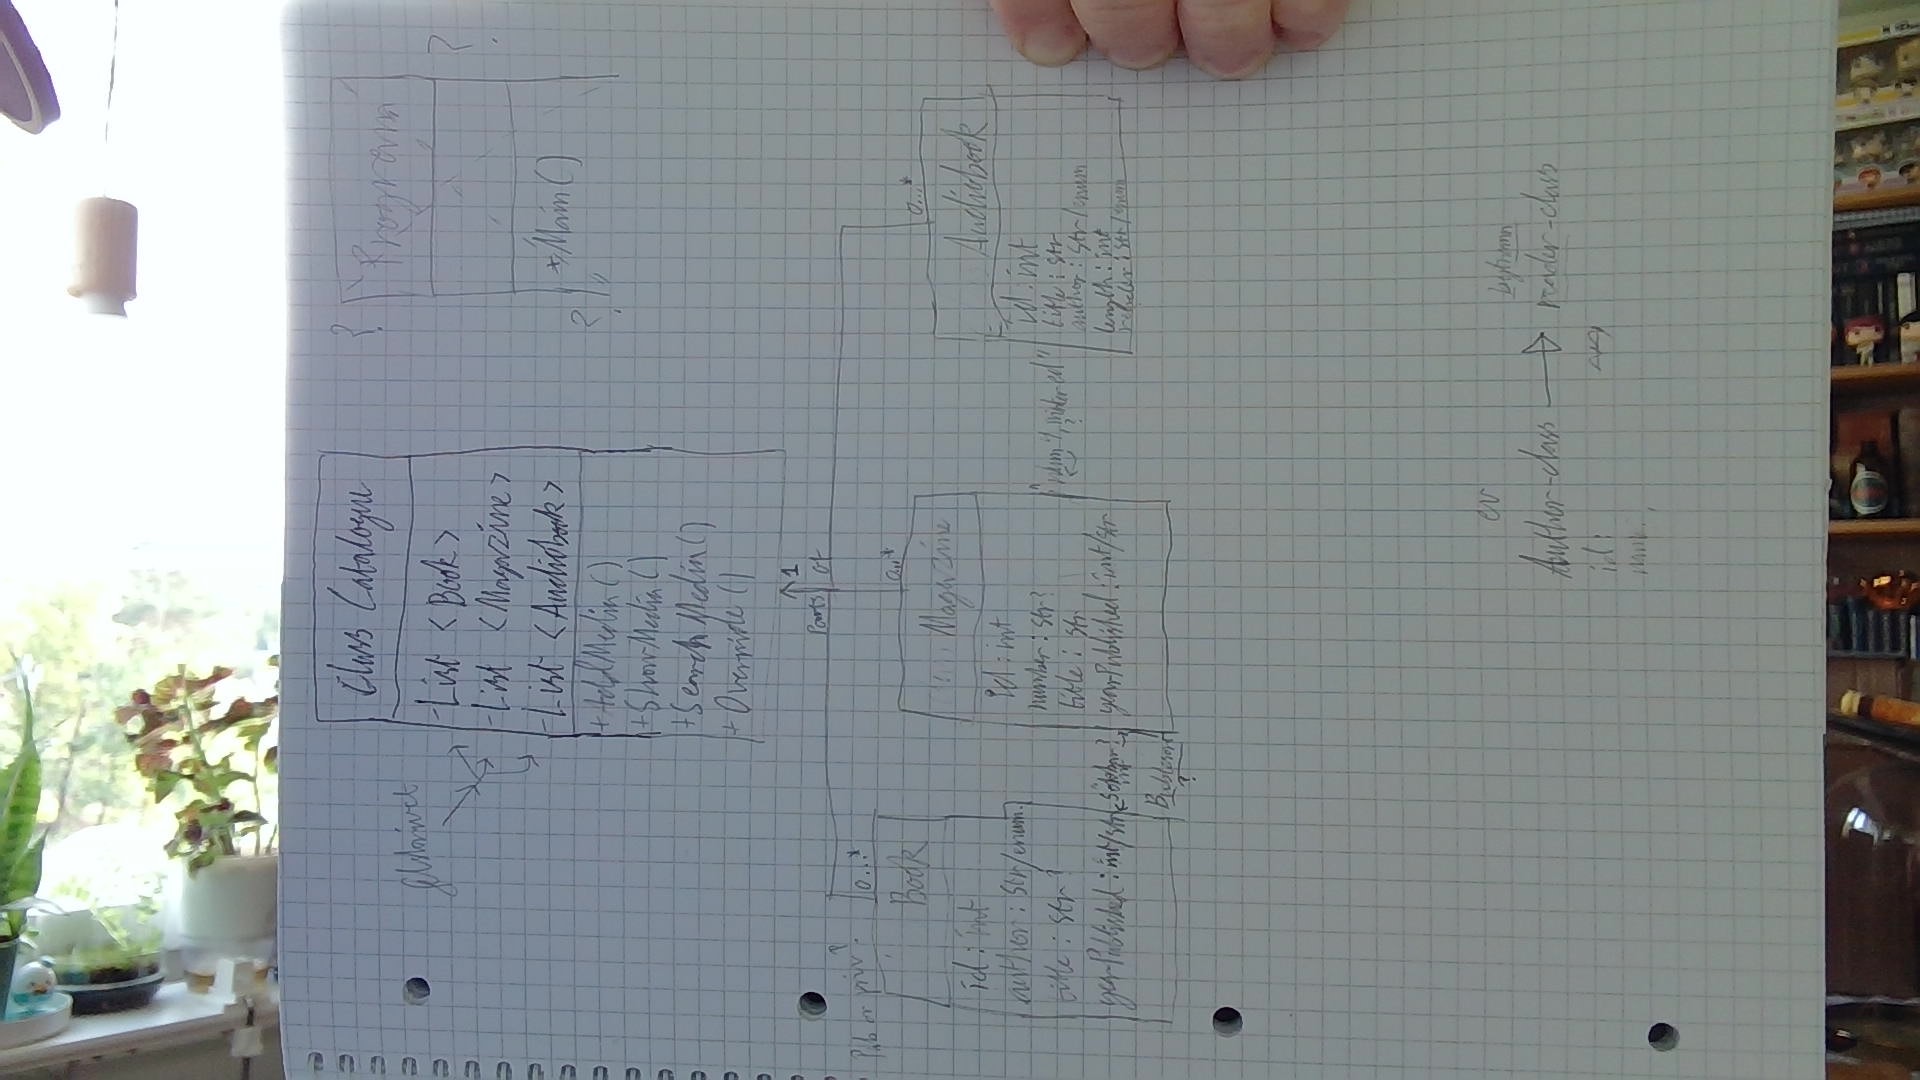 Class Catalogue
felskrivet
-List <Book>
-List <Magazine>
-List <Audiobook>
+AddMedia()
+ShowMedia()
+SearchMedia()
+Override()
? Program
?
*Main()
?
1
Parts of
Pub or priv?
0...*
Book
id: int
author: str/enum.
title: str?
yearPublished: int/str
Sökbar?
int
Bubblesort
?
0...*
Magazine
id: int
number: str?
title: str
yearPublished: int/str
?
0...*
Audiobook
id: int
title: str
author: str/enum
length: int
reader: str/enum
ev
Author-class
id:
reader-class